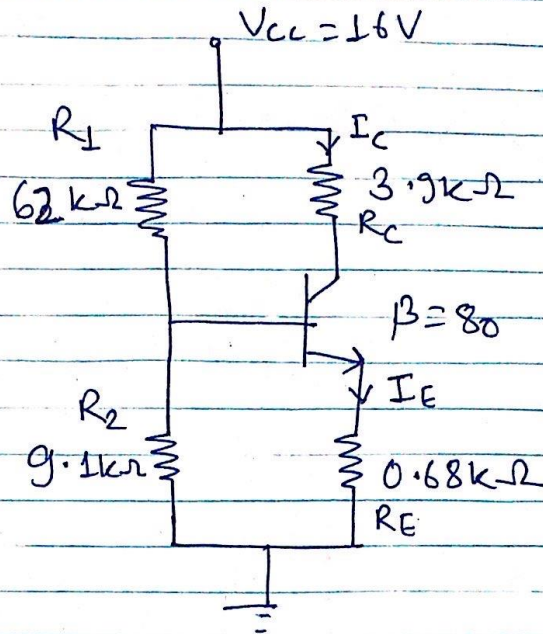 Vcc = 16V
R1
Ic
62 kΩ
3.9kΩ
Rc
β = 80
IE
R2
9.1kΩ
0.68kΩ
RE